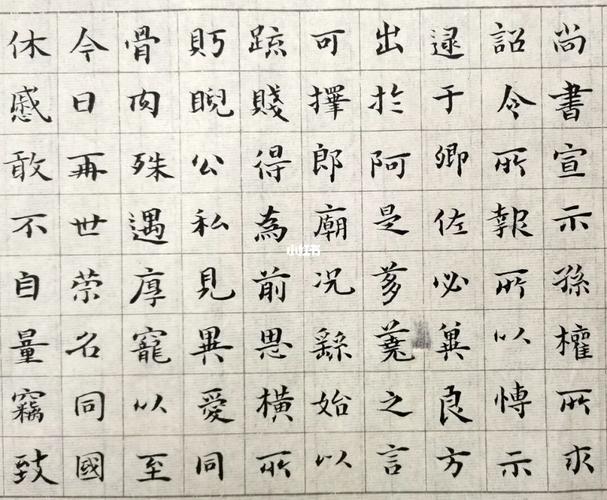 尚書宣示孫權所求
詔令所報所以博示
逮于卿佐必冀良方
出於阿是芻蕘之言
可擇郎廟况繇始以
疏賤得為前恩橫所
眄睨公私見異愛同
骨肉殊遇厚寵以至
今日再世榮名同國
休慼敢不自量竊致
小红书